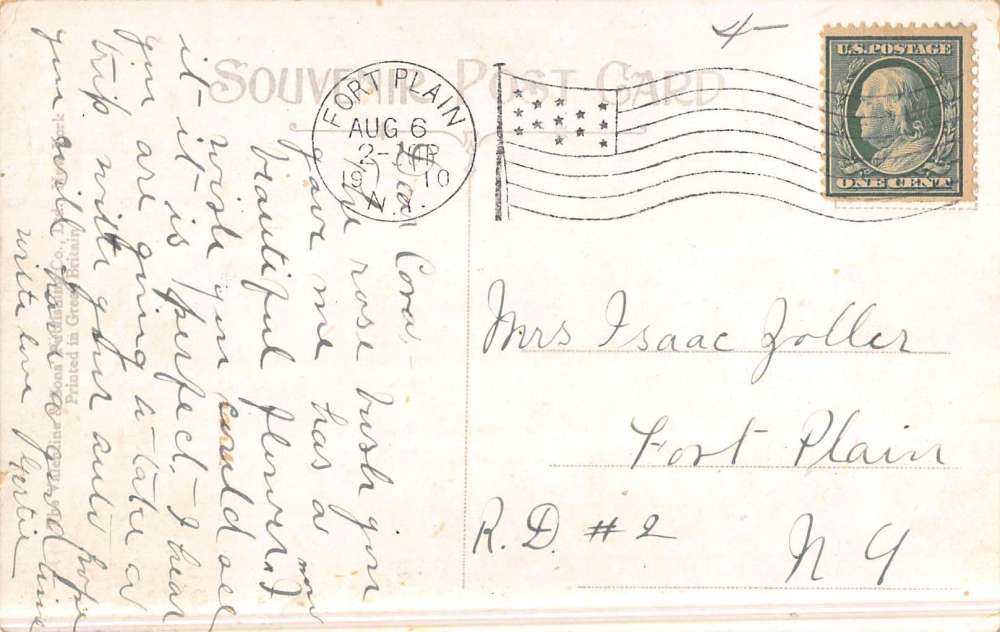 SOUVENIR POST CARD
FORT PLAIN
AUG 6
2-
1910
N.Y.
U.S. POSTAGE
ONE CENT
4
Mrs Isaac Zoller
Fort Plain
R.D. #2
N Y
Dear Cora,
The rose bush you
gave me has a
beautiful flower now
I
wish you could see
it - it is perfect. I hear
you are going a - take a
trip with your auto hope
you will have a good time
with love Gertie
Printed in Great Britain